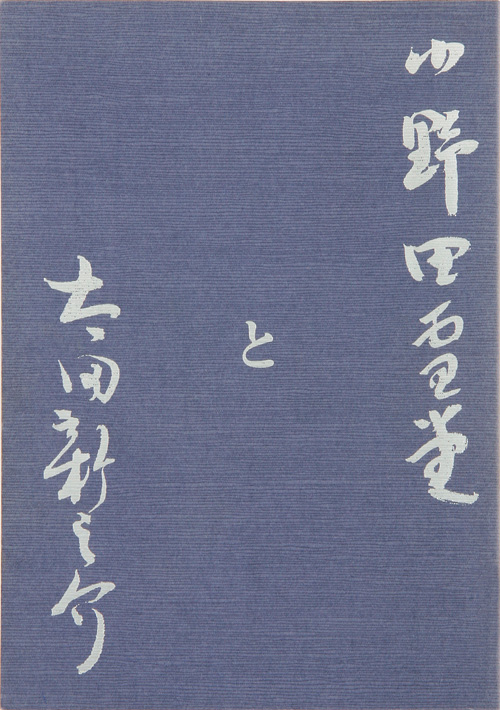 小野田雪堂
と
太田新之介